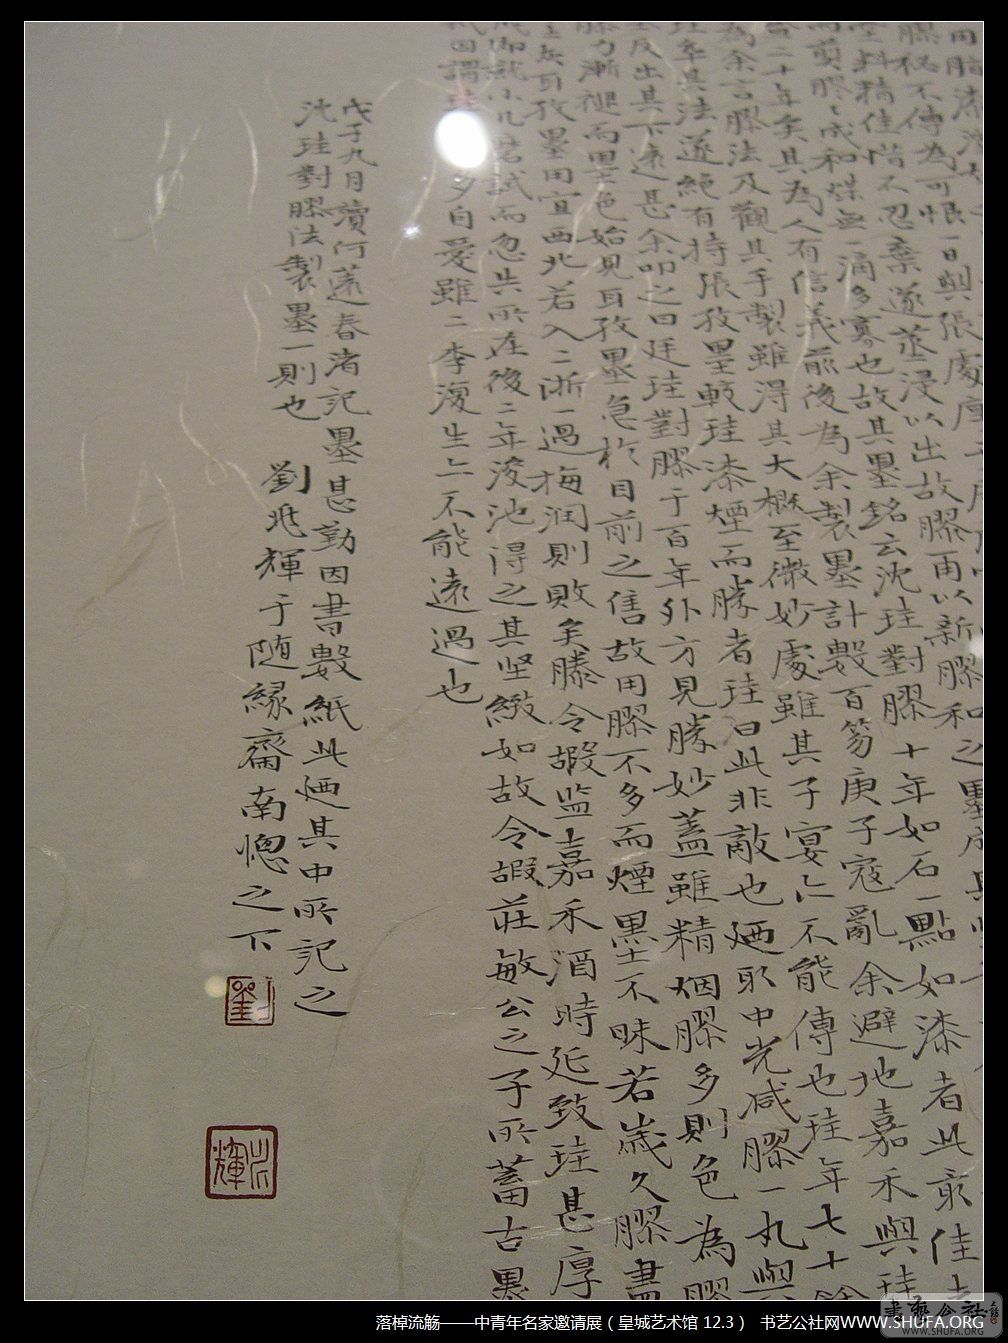 用脂漆
膠秘不傳為可恨一日與張處厚于居
墨料精佳惜不忍棄遂蒸浸以出故膠再以新膠和之墨成其堅
而煎膠膠成和煤無一滴多寡也故其墨銘云沈珪對膠十年如石一點如漆者此最佳者
二十年矣其為人有信義前後為余製墨計數百笏庚子寇亂余避地嘉禾與珪
為余言膠法及觀其手製雖得其大概至微妙處雖其子宴亦不能傳也珪年七十餘
珪卒其法遂絕有持張孜墨較珪漆煙而勝者珪曰此非敵也廼取中光減膠一丸與
墨反出其下遠甚余叩之曰廷珪對膠于百年外方見勝妙蓋雖精烟膠多則色為膠
膠力漸褪而墨色始見耳孜墨急於目前之售故用膠不多而煙墨不昧若歲久膠盡
土炭耳孜墨用宜西北若入二浙一過梅润則敗矣滕令嘏监嘉禾酒時延致珪甚厚
成即就小兒君試而忽失所在後二年浚池得之其坚緻如故令嘏莊敏公之子所蓄古墨
因謂珪多自爱雖二李復生亦不能遠過也
戊子九月讀何薳春渚記墨甚勤因書數紙此廼其中所記之
沈珪對膠法製墨一則也 劉兆輝于随緣齋南牕之下
劉
兆輝
落棹流觞——中青年名家邀请展（皇城艺术馆 12.3） 书艺公社网WWW.SHUFA.ORG
書藝公社
WWW.SHUFA.ORG